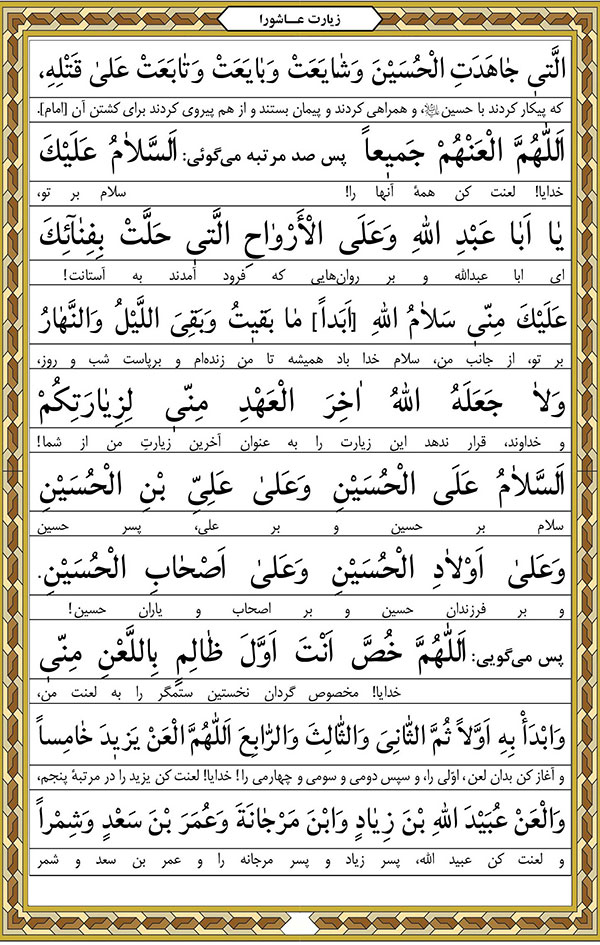 زیارت عـاشورا
الَّتي جٰاهَدَتِ الْحُسَيْنَ وَشٰايَعَتْ وَبٰايَعَتْ وَتٰابَعَتْ عَلىٰ قَتْلِهِ،
که پیکار کردند با حسین، و همراهی کردند و پیمان بستند و از هم پیروی کردند برای کشتن آن [امام].
اَللّٰهُمَّ الْعَنْهُمْ جَميعاً پس صد مرتبه می‌گوئی: اَلسَّلاٰمُ عَلَيْكَ
خدایا! لعنت کن همهٔ آنها را! سلام بر تو،
يٰا اَبٰا عَبْدِ اللهِ وَعَلَى الْأَرْوٰاحِ الَّتي حَلَّتْ بِفِنٰآئِكَ
ای ابا عبدالله و بر روان‌هایی که فرود آمدند به آستانت!
عَلَيْكَ مِنّي سَلاٰمُ اللهِ [اَبَداً] مٰا بَقيتُ وَبَقِىَ اللَّيْلُ وَالنَّهٰارُ
بر تو، از جانب من، سلام خدا باد همیشه تا من زنده‌ام و برپاست شب و روز،
وَلاٰ جَعَلَهُ اللهُ اٰخِرَ الْعَهْدِ مِنّي لِزِيٰارَتِكُمْ
و خداوند، قرار ندهد این زیارت را به عنوان آخرین زیارتِ من از شما!
اَلسَّلاٰمُ عَلَى الْحُسَيْنِ وَعَلىٰ عَلِىِّ بْنِ الْحُسَيْنِ
سلام بر حسین و بر علی، پسر حسین
وَعَلىٰ اَوْلاٰدِ الْحُسَيْنِ وَعَلىٰ اَصْحٰابِ الْحُسَيْنِ.
و بر فرزندان حسین و بر اصحاب و یاران حسین!
پس می‌گویی: اَللّٰهُمَّ خُصَّ اَنْتَ اَوَّلَ ظٰالِمٍ بِاللَّعْنِ مِنّي
خدایا! مخصوص گردان نخستین ستمگر را به لعنت من،
وَابْدَأْ بِهِ اَوَّلاً ثُمَّ الثّٰانِىَ وَالثّٰالِثَ وَالرّٰابِعَ اَللّٰهُمَّ الْعَنْ يَزيدَ خٰامِساً
و آغاز کن بدان لعن، اوّلی را، و سپس دومی و سومی و چهارمی را! خدایا! لعنت کن یزید را در مرتبهٔ پنجم،
وَالْعَنْ عُبَيْدَ اللهِ بْنَ زِيٰادٍ وَابْنَ مَرْجٰانَةَ وَعُمَرَ بْنَ سَعْدٍ وَشِمْراً
و لعنت کن عبید الله، پسر زیاد و پسر مرجانه را و عمر بن سعد و شمر